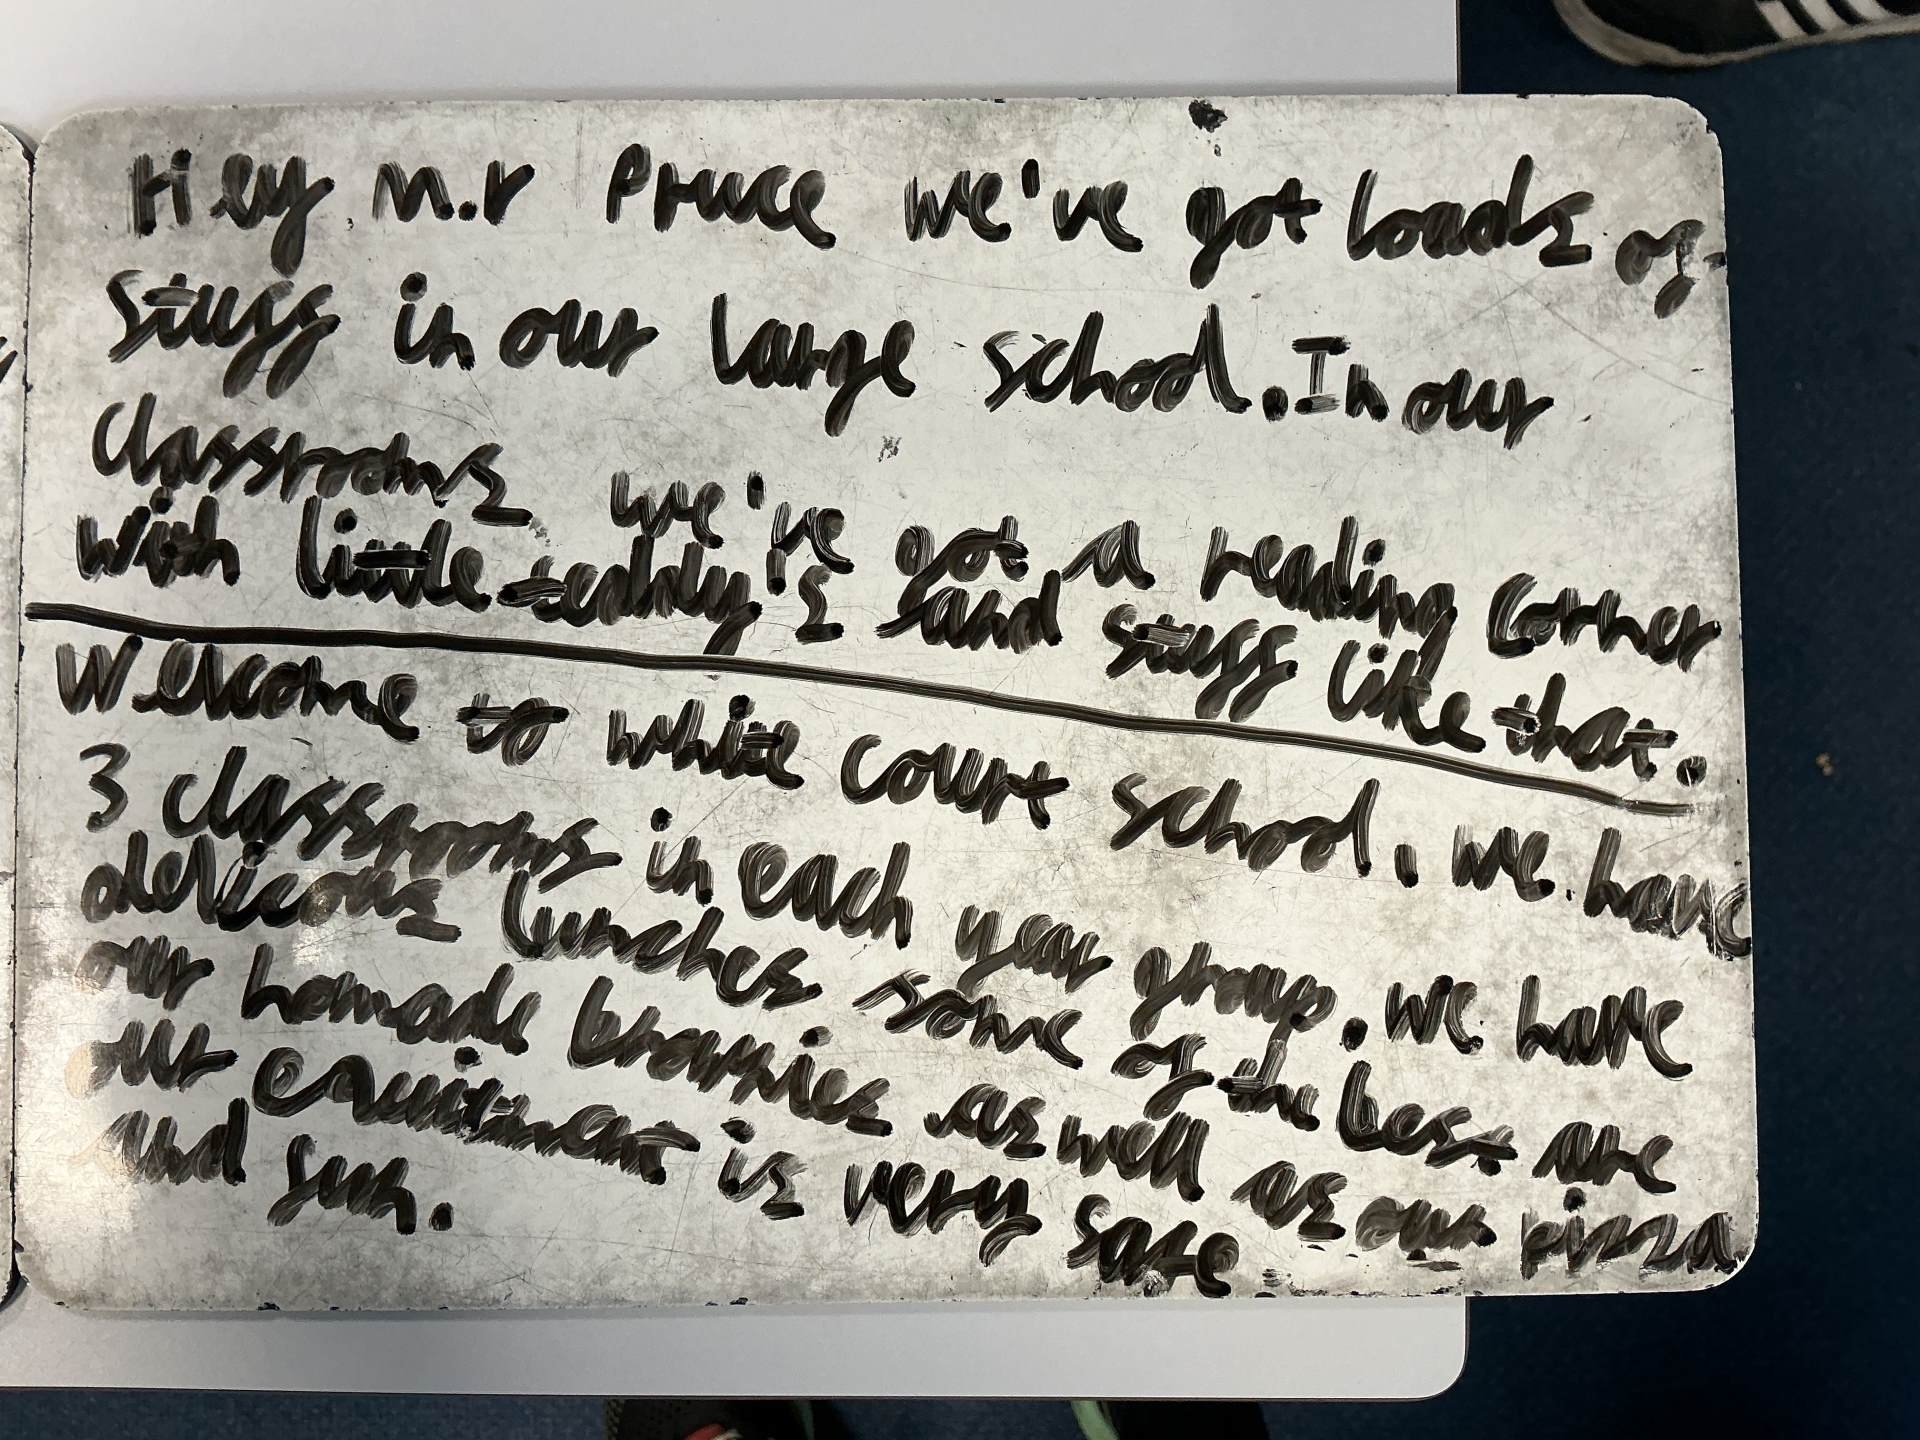 Hey M.r Pruce we've got loads of
stuff in our large school. In our
classrooms we've got a reading corner
with little teddy's and stuff like that.
Welcome to white court school. we have
3 classrooms in each year group. we have
delicous lunches some of the best are
our homade brownies as well as our pizza
our equitment is very safe
and fun.